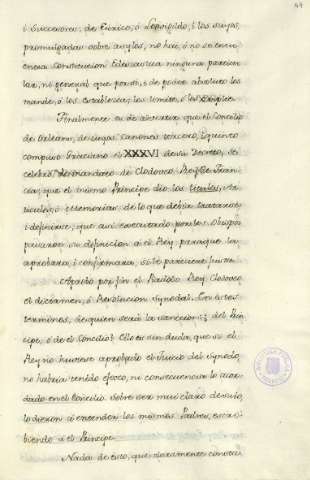 49
i Succesores; de Eurico, ó Leovigildo, i los suyos,
promulgadas sobre aquellos, no hai, ó no se encu
entra Constitucion Eclesiastica ninguna particu
lar, ni general que por sí, i de poder absoluto les
mande, ó les establezca, les limite, ó les
Finalmente es de advertir que el Concilio
de Orleans, de cuyos Canones tercero, i quinto
compuso Graciano el XXXVI de su Decreto, se
celebró de mandato de Clodoveo, Rey de Fran
cia; que el mismo Principe dio los titulos, Ar
ticulos, ó Memorias de lo que debia tratarse
i definirse; que asi executado por los Obispos
pasaron su definicion a el Rey, para que la
aprobara, i confirmara, si le pareciere justa.
Aprobó por fin el Rey Clodoveo
el dictamen, ó Resolucion Synodal. En estos
terminos, de quien será la sancion; del Prin
cipe, ó de el Concilio? Ello es sin duda, que si el
Rey no hubiese aprobado el juicio del Synodo,
no habria tenido efecto, ni consecuencia lo acor
dado en el Concilio sobre ser mui claro
lo dieron á entender los mismos Padres, escri
biendo a el Principe.
Nada de esto, que claramente consta i